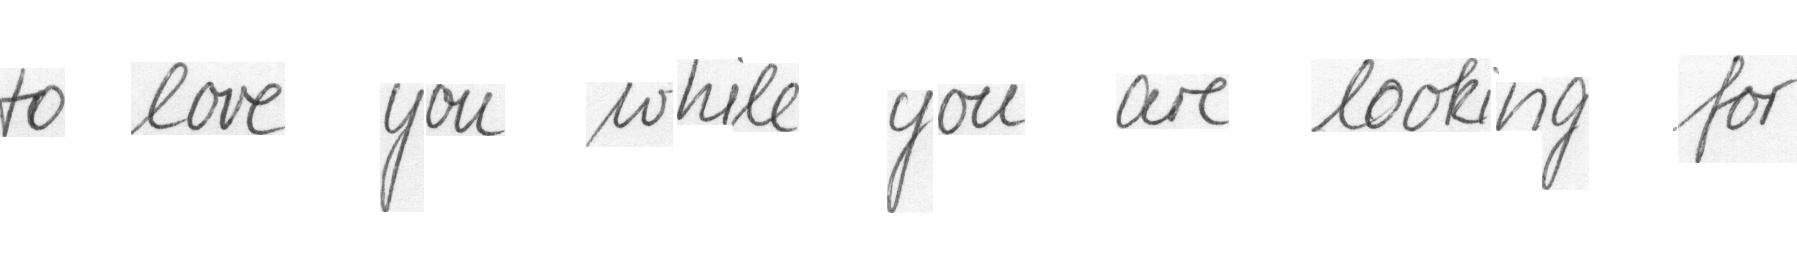 to love you while you are looking for